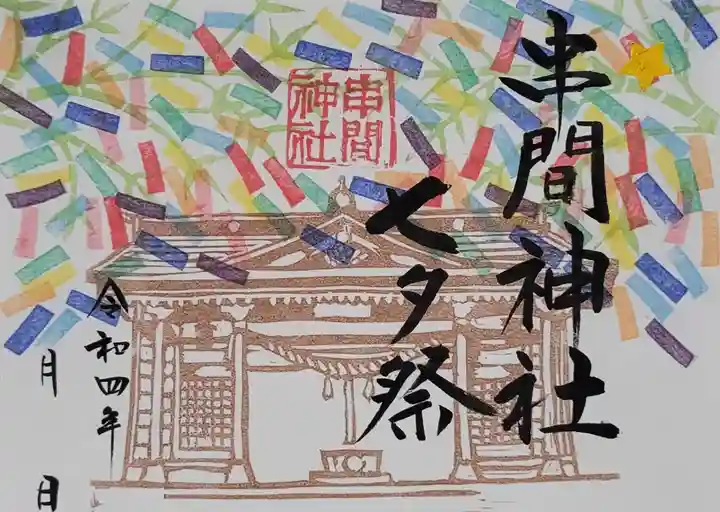 串間神社
七夕祭
串間
神社
令和四年
月 日